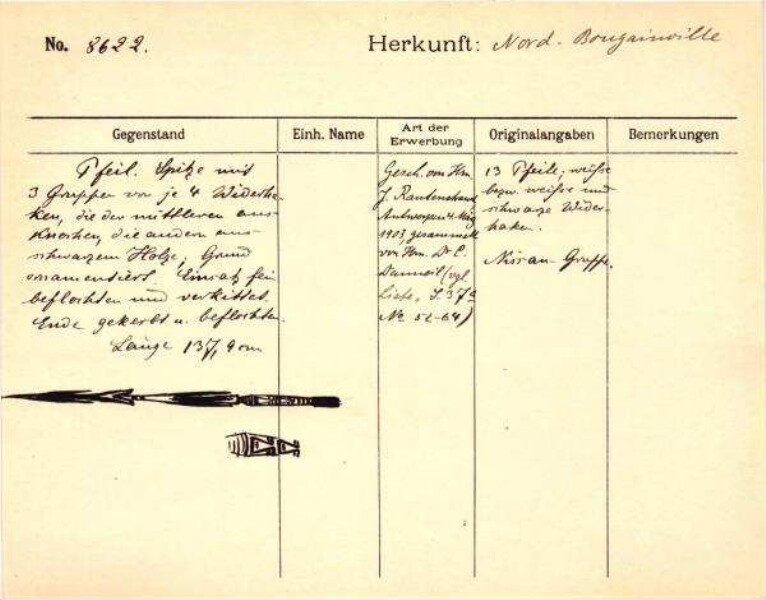 No. 8622.
Herkunft: Nord. Bougainville
Gegenstand
Einh. Name
Art der Erwerbung
Originalangaben
Bemerkungen
Pfeil. Spitze mit
3 Gruppen von je 4 Widerha-
ken, die der mittleren aus
Knochen, die andern aus
schwarzem Holze; Grund
ornamentiert. Einsatz fein
beflochten und verkittet.
Ende gekerbt u. beflochten.
Länge 137,9 cm
Gesch. von Hrn.
J. Rautenstrauch
Antwerpen 4. Mai
1903, gesammelt
von Hrn. Dr. C.
(vgl.
Liste, S. 37
No 52-64)
13 Pfeile, weiße
bezw. weiße und
schwarze Wider-
haken.
Nissan-Gruppe.